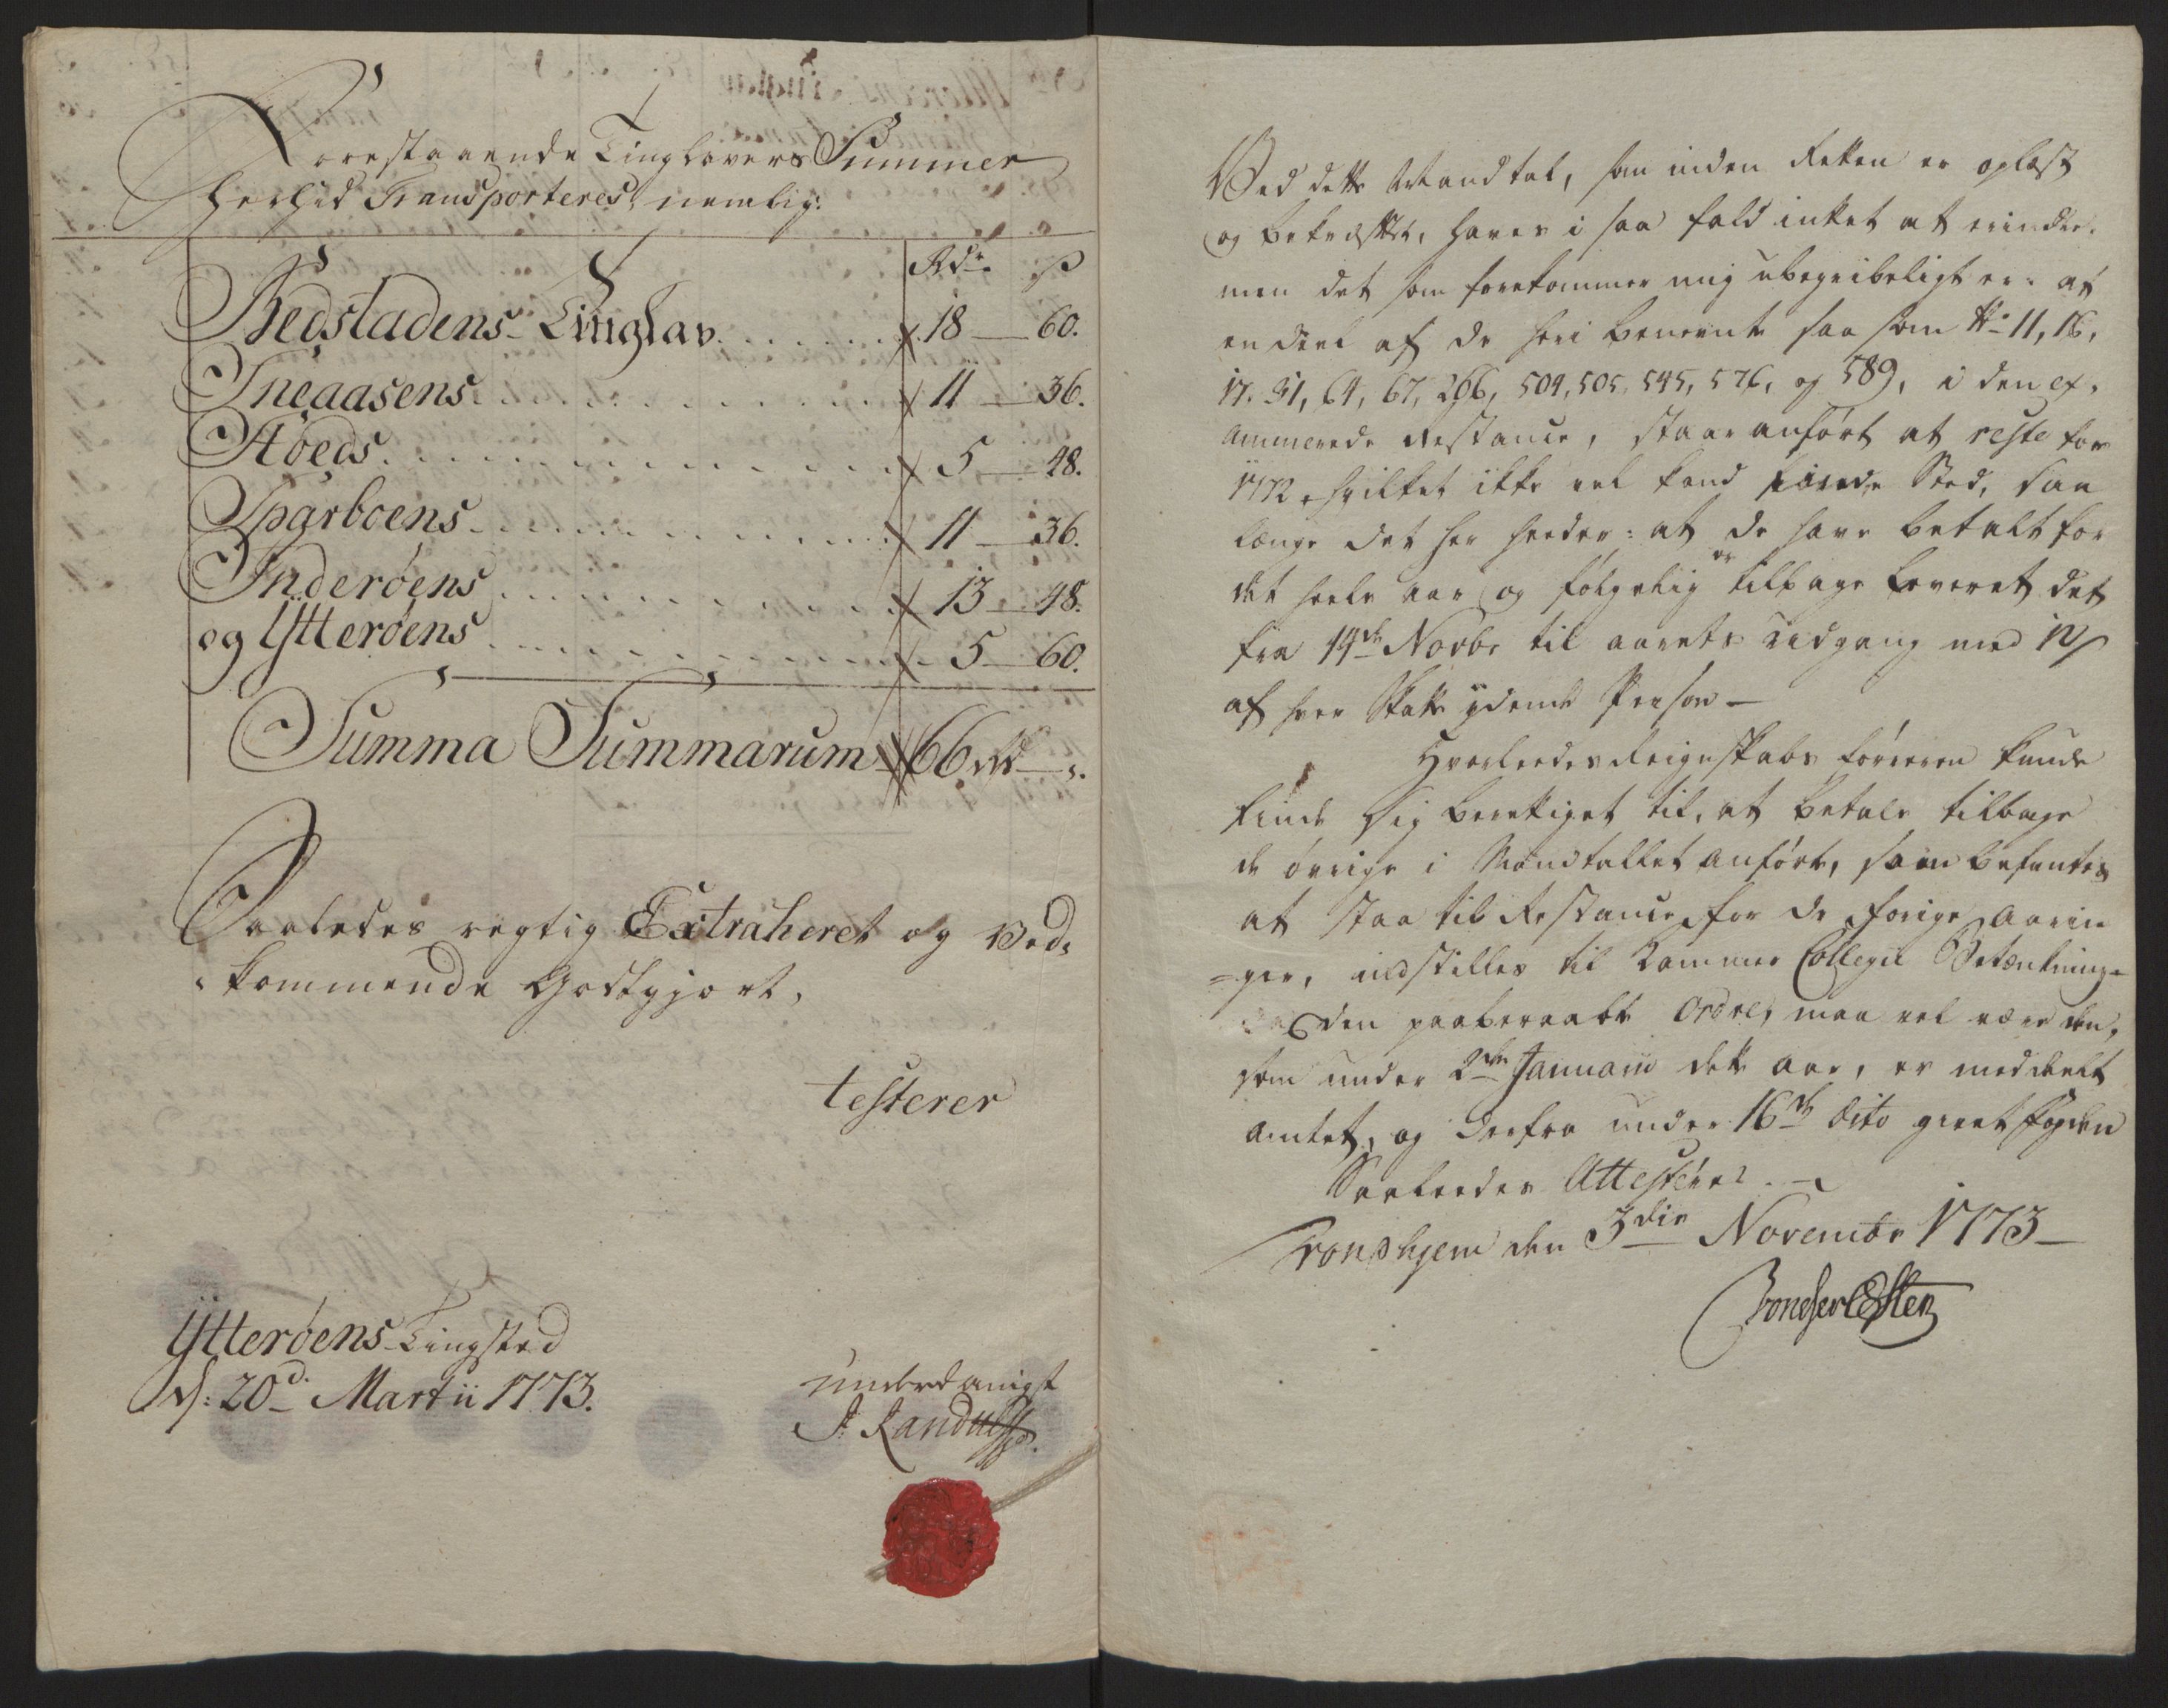 Forestaaende Tinglavers Summer
herhid Transporteres, nemlig:
Rdr. ß
Bedstadens Tinglav 18 60.
Sneaasens 11 36.
Stoeds 5 48.
Sparboens 11 36.
Inderøens 13 48.
og Ytterøens 5 60.
Summa Summarum 66 rd s.
Saaledes rigtig Extraheret og Ved-
kommende Godtgjort,
testerer
Ytterøens Tingsted
d: 20d. Martii 1773.
underdanigst
J: Randulff
Ved dette Mandtal, som inden Retten er oplæst
og bekræftet, haves i saa fald intet at erindre.
men det som forekommer mig ubegribeligt er: at
en deel af de heri benevnte saa som No 11, 16,
17. 31, 64, 67, 266, 504, 505, 545, 576, og 589, i den ex-
amınerede Restance, staar anført at reste for
1772, hvilket ikke vel kand finde Sted, saa
længe det her heeder: at de have betalt for
det heele aar og følgelig er tilbage leveret det
fra 14de Novbr til aarets Udgang med 12 ß
af hver Skatt ydende Person —
Hvorleedes Reignskabs føreren kunde
finde sig berettiget til, at betale tilbage
de øvrige i Mandtallet anførte, som befantes
at staa til Restance for de forige Aarin-
=ger, indstilles til Cammer Collegii Betænkning-
den paaberaabte Ordre, maa vel være den,
som under 2den Januarii dette aar, er meddeelt
Amtet, og derfra under 16de dito givet Fogden
Saaleedes Attesterer
Tronhjem den 3die Novembr 1773